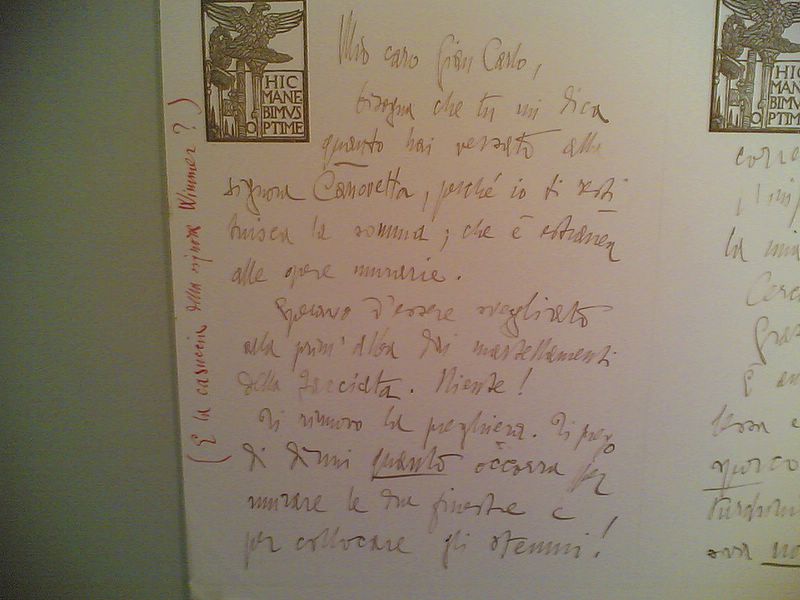 HIC
MANE
BIMVS
OPTIME
Mio caro Gian Carlo,
bisogna che tu mi dica
quanto hai versato alla
signora Canovetta, perché io ti resti
tuisca la somma; che è estranea
alle opere murarie.
Speravo d'essere svegliato
alla prim'alba dai martellamenti
della facciata. Niente!
Ti rinnovo la preghiera. Ti prego
di dirmi quanto occorra per
murare le due finestre e
per collocare gli stemmi!
(E la casuccia della signora Wimmer?)
HIC
MAN
BIM
OPTI
corre
la mia
Cerc
Graz
È an
sporco